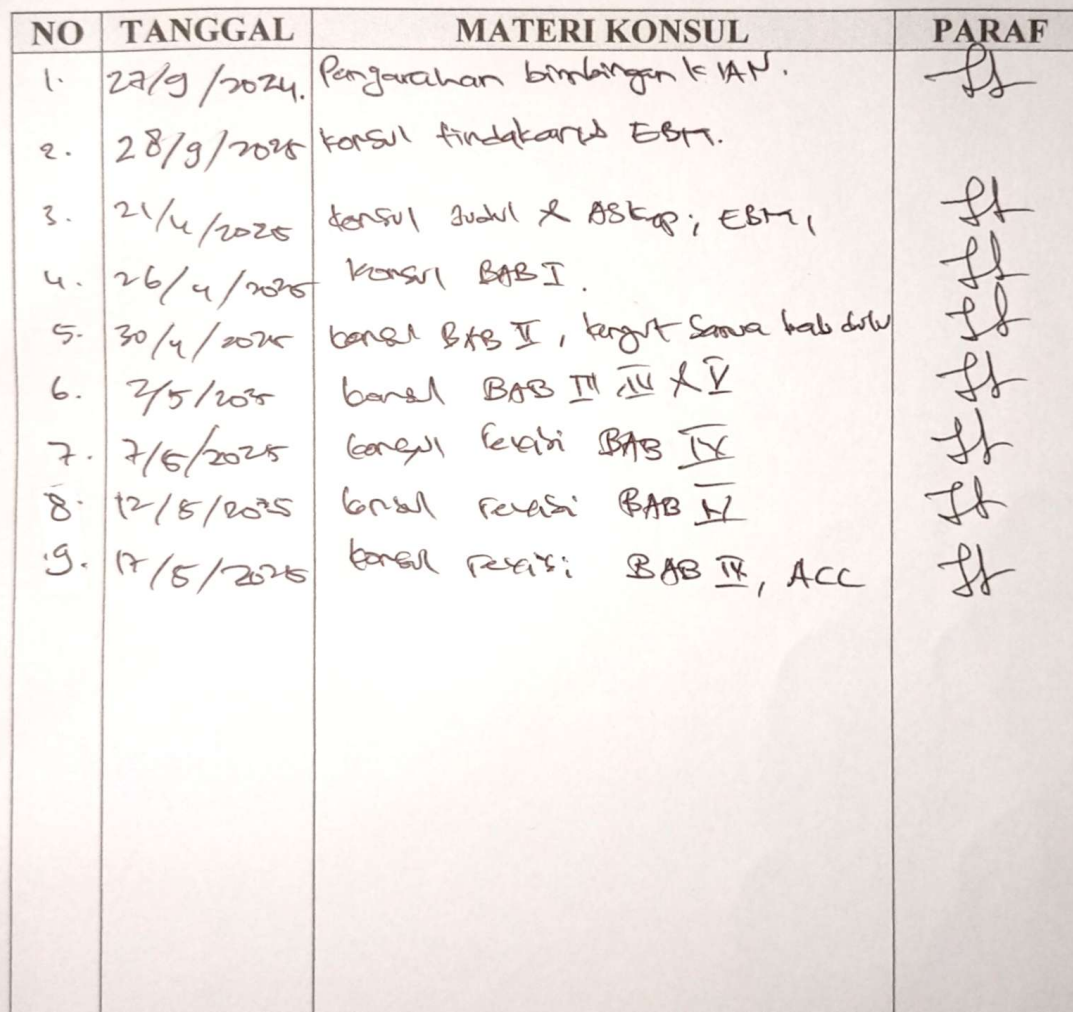 NO TANGGAL MATERI KONSUL PARAF
1. 27/9/2024. Pengarahan bimbingan KIAN.
2. 28/9/2025 konsul EBM.
3. 21/4/2025 konsul Judul & ASKep; EBM,
4. 26/4/2025 Konsul BAB I.
5. 30/4/2025 konsul BAB II, semua bab dulu
6. 2/5/2025 konsul BAB III IV & V
7. 7/5/2025 konsul revisi BAB IV
8. 12/5/2025 konsul revisi BAB IV
9. 17/5/2025 konsul revisi BAB IV, ACC